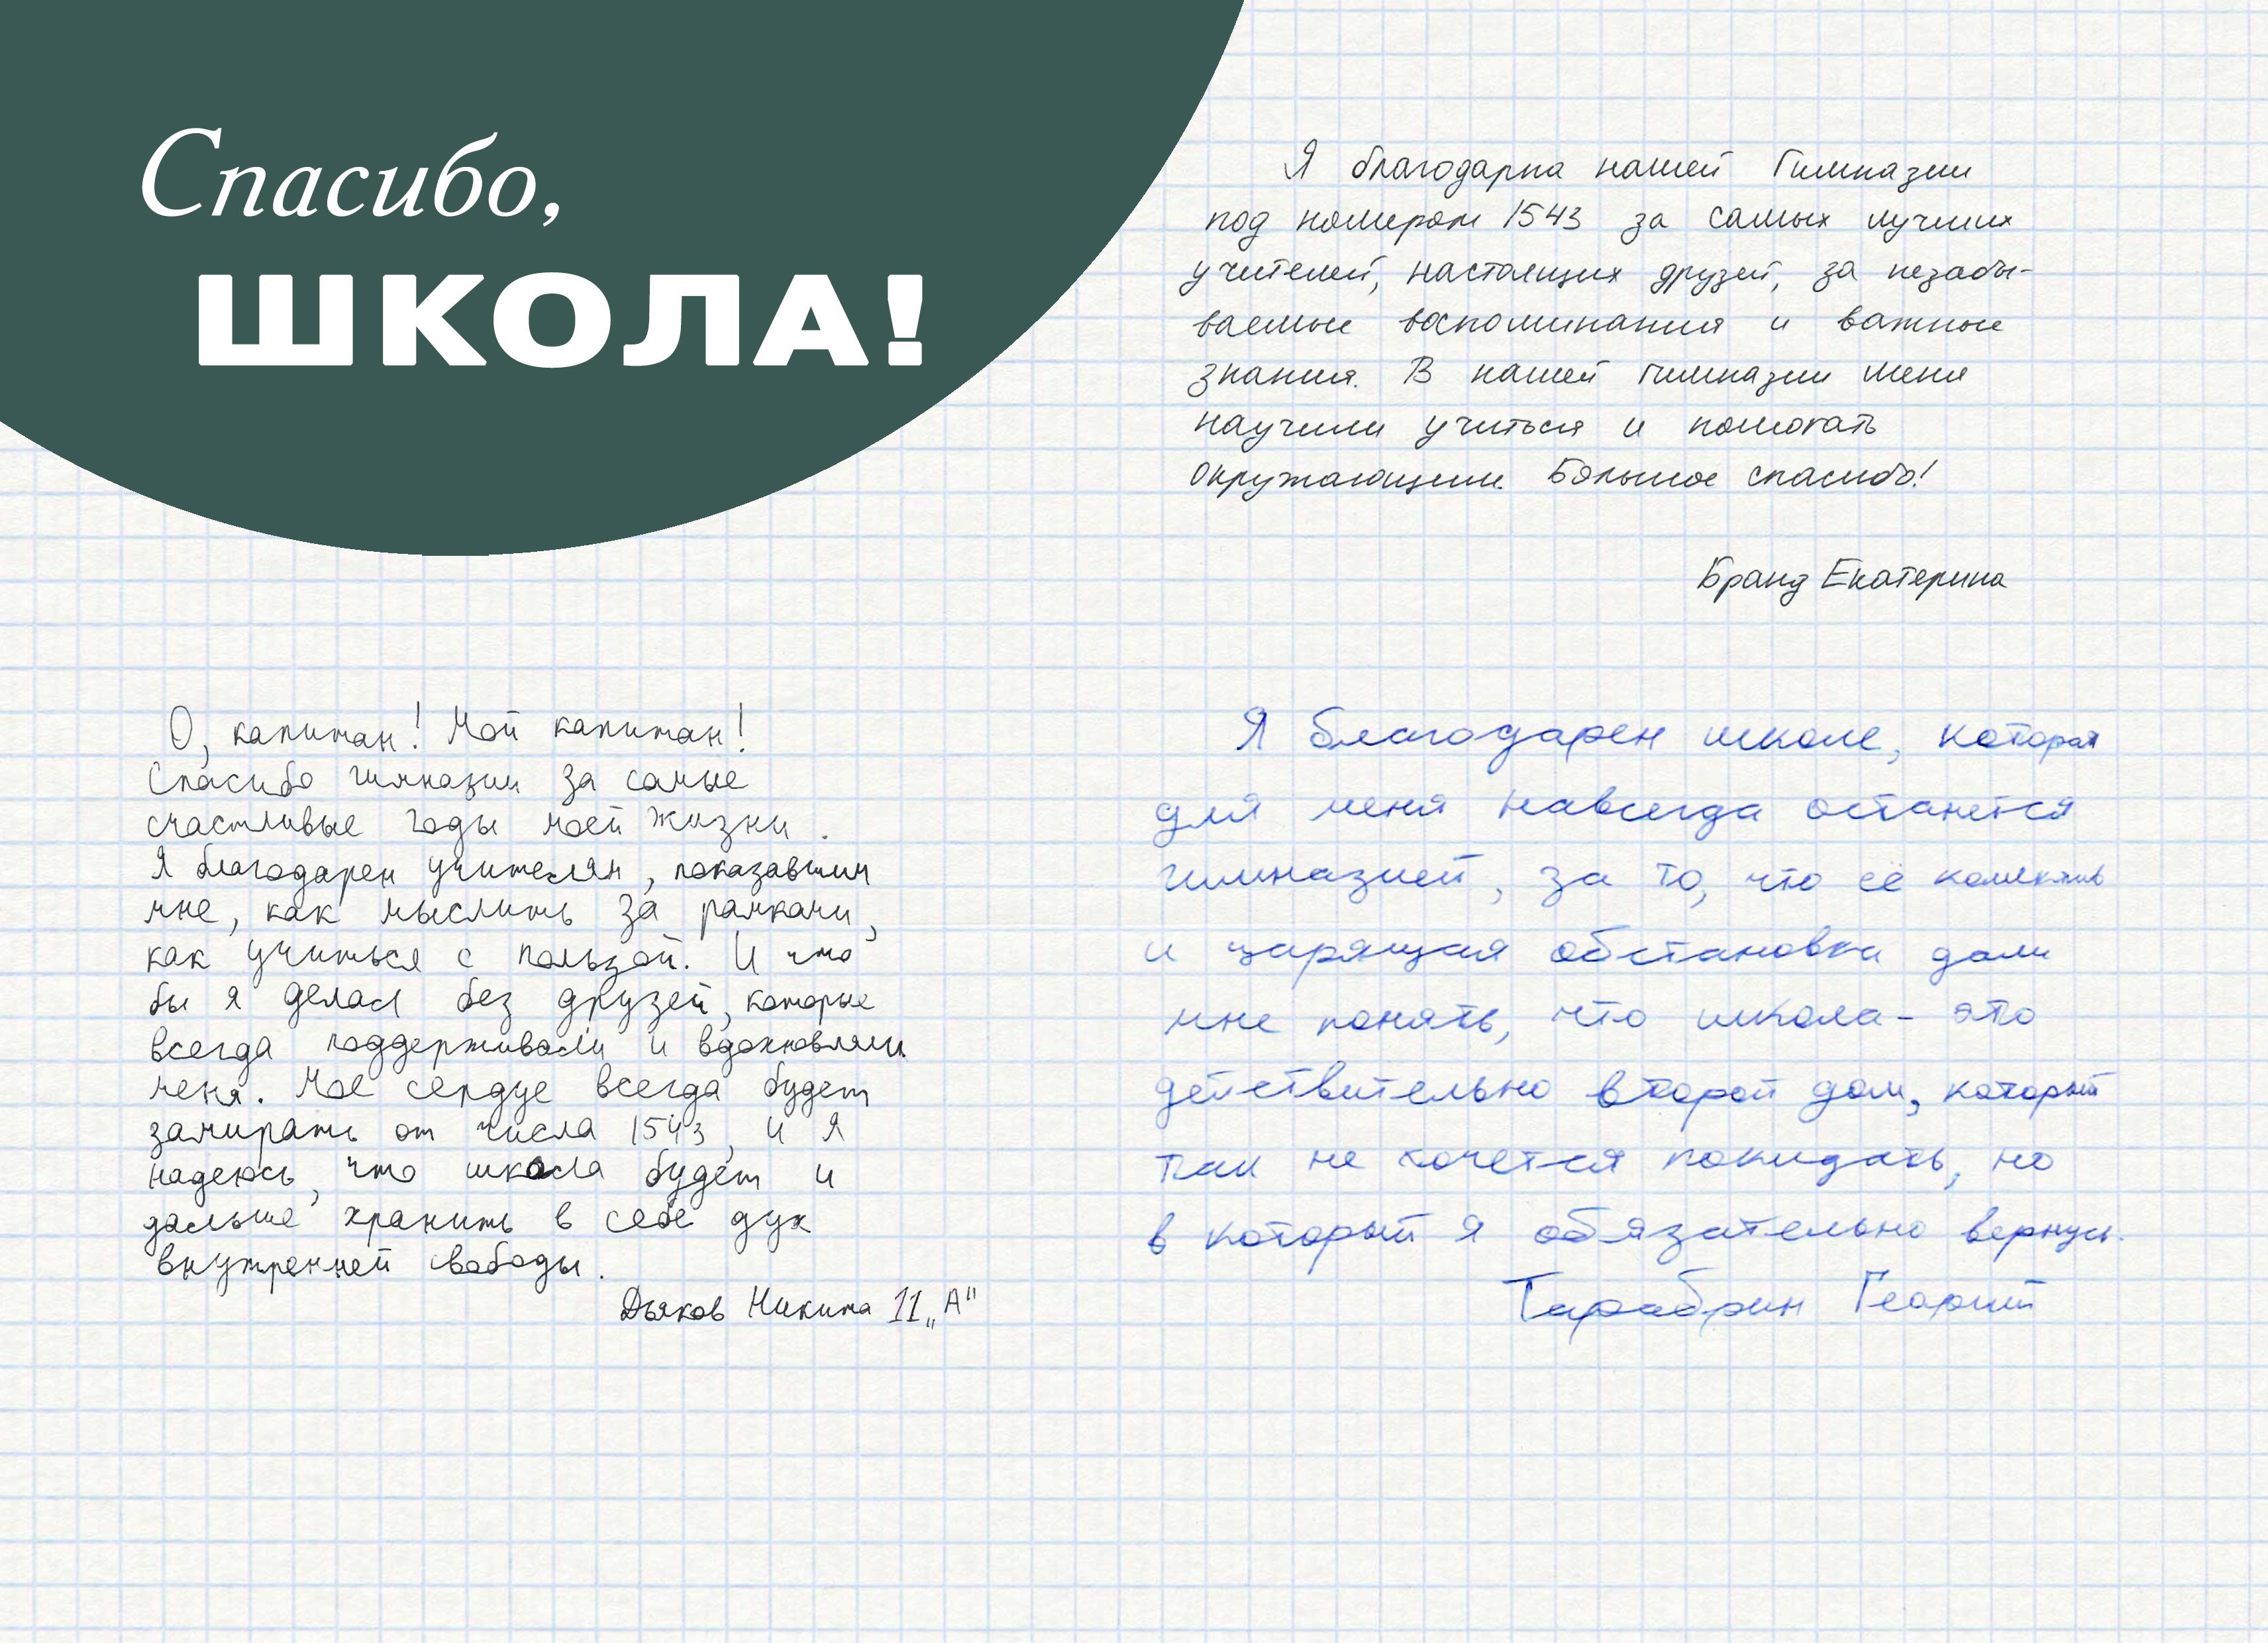 Спасибо,
ШКОЛА!
Я благодарна нашей Гимназии
под номером 1543 за самых лучших
учителей, настоящих друзей, за незабы-
ваемые воспоминания и важные
знания. В нашей гимназии меня
научили учиться и помогать
окружающим. Большое спасибо!
Бранд Екатерина
О, капитан! Мой капитан!
Спасибо гимназии за самые
счастливые годы моей жизни.
Я благодарен учителям, показавшим
мне, как мыслить за рамками,
как учиться с пользой. И что
бы я делал без друзей, которые
всегда поддерживали и вдохновляли
меня. Мое сердце всегда будет
замирать от числа 1543, и я
надеюсь, что школа будет и
дальше хранить в себе дух
внутренней свободы.
Дьяков Никита 11 „А"
Я благодарен школе, которая
для меня навсегда останется
гимназией, за то, что её
и царящая обстановка дали
мне понять, что школа - это
действительно второй дом, который
так не хочется покидать, но
в который я обязательно вернусь.
Тарабрин Георгий